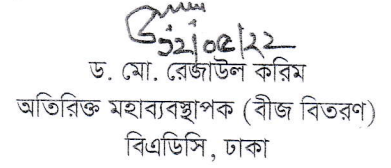 ১২/০৫/২২
ড. মো. রেজাউল করিম
অতিরিক্ত মহাব্যবস্থাপক (বীজ বিতরণ)
বিএডিসি, ঢাকা